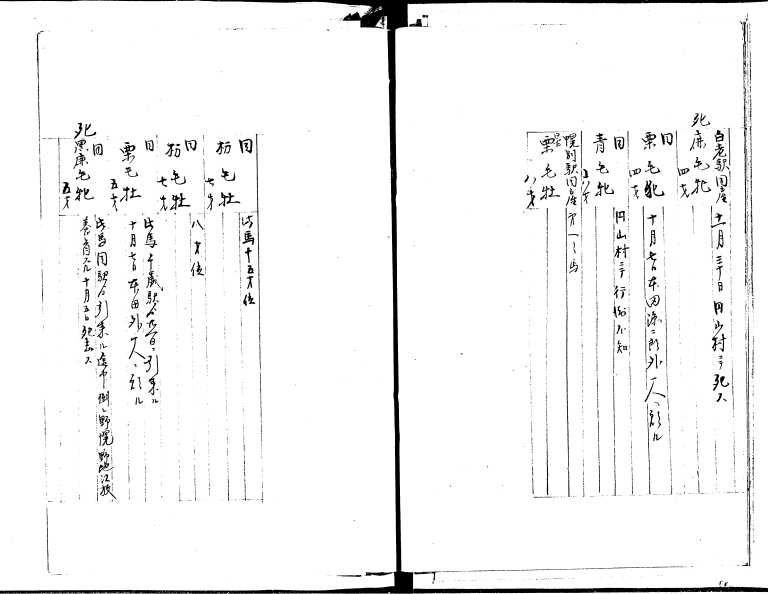 白老駅国産
死 鹿毛牝
四才
十一月三十日円山村ニテ死ス
同
栗毛牝
四才
十月七日本田源二郎外一人ヘ預ル
同
青毛牝
八才
円山村ニテ行衛不知
幌別駅国産
栗毛牡
八才
同
栃毛牡
七才
此馬十五才位
同
栃毛牡
七才
八才位
同
栗毛牡
五才
此馬千歳駅ヨリ
引来ル
十月七日本田外一人ヘ預ル
同
死 黒鹿毛牝
五才
此馬同駅ヨリ引来ル途中倒レ野幌野地江放
養育スル十月五日死去ス